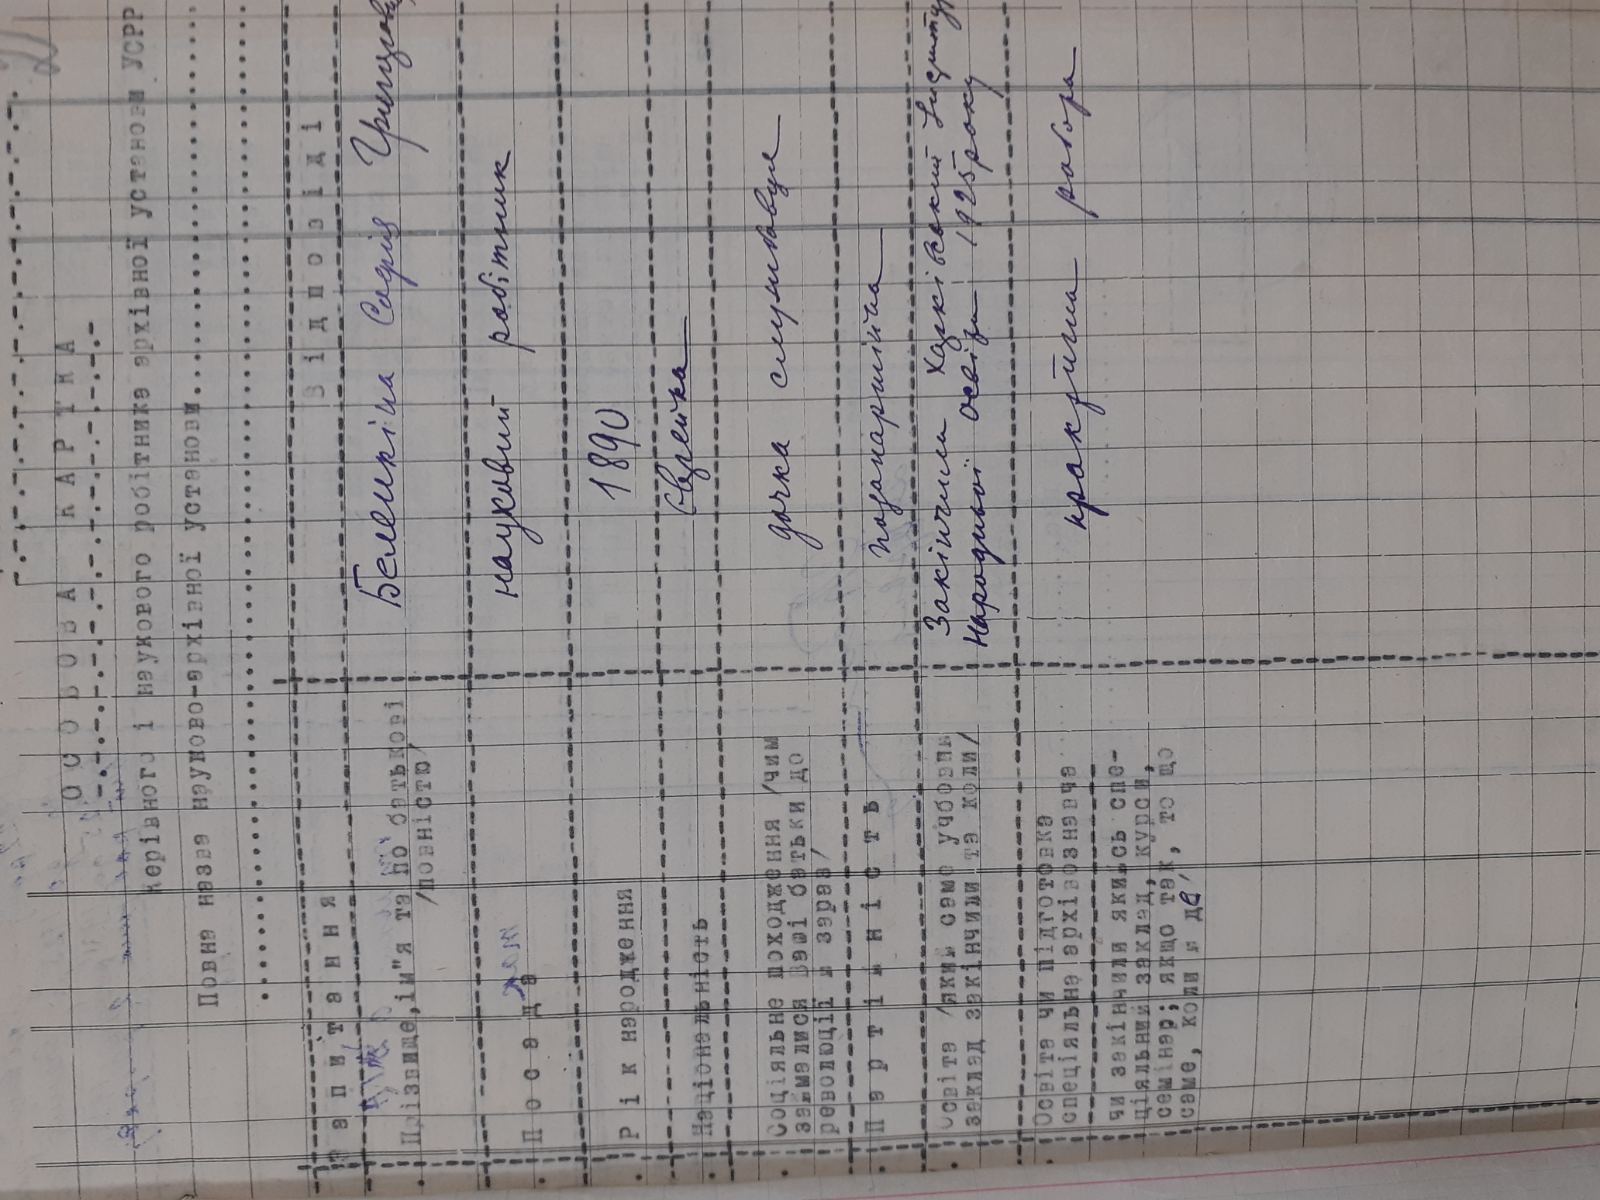 ОСОБОВА КАРТКА
керівного і наукового робітника архівної установи УСРР
Повна назва науково-архівної установи
Запитання
Відповіді
Прізвище, ім"я та по батькові
/повністю/
Белишкіна Софія
Посада
науковий робітник
Рік народження
1890
Національність
Єврейка
Соціяльне походження /чим
займалися Ваші батьки до
революції й зараз/
дочка службовця
Партійність
позапартійна
Освіта /який саме учбовий
заклад закінчили та коли/
Закінчила Харківський Інститут
Народньої освіти 1925 року
Освіта чи підготовка
спеціяльна архівознавча
чи закінчили якийсь спе-
ціяльний заклад, курси,
семінар; якщо так, то що
саме, коли й де/
практична робота